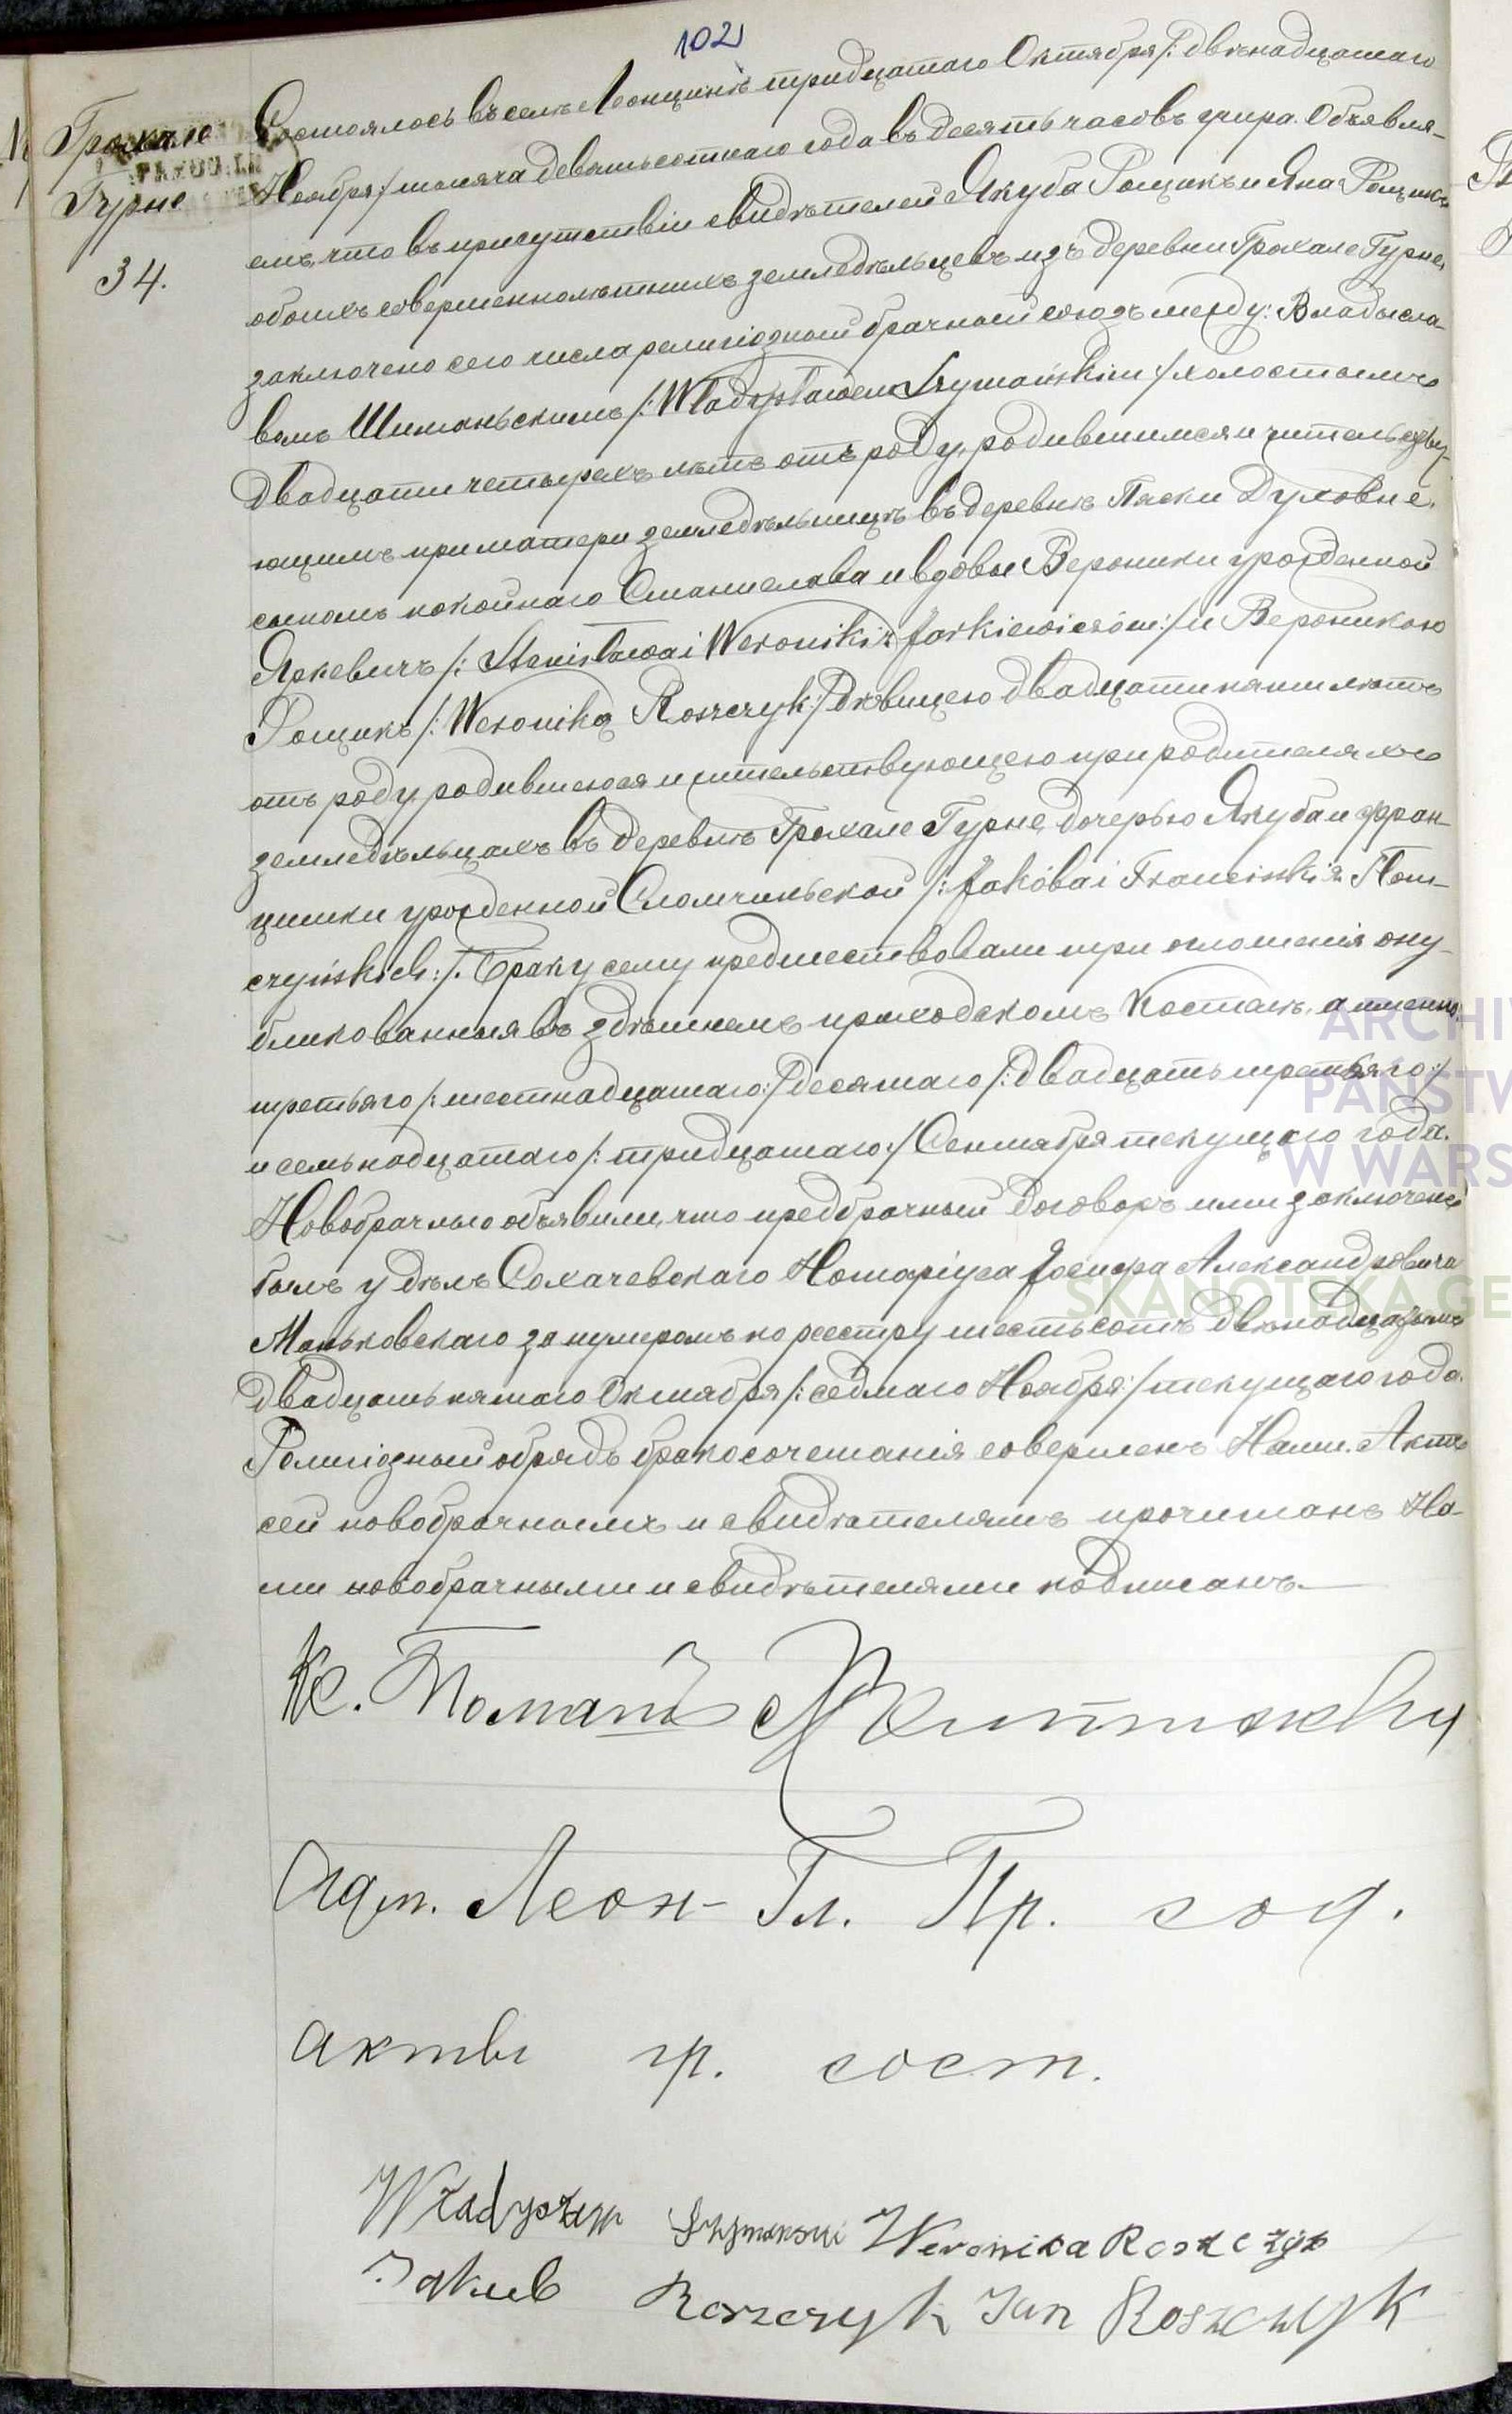 102
Грохале
Гурне
34.
Состоялось въ селѣ Леонцинѣ тридцатаго Октября /: двѣнадцатаго
Ноября :/ тысяча девятьсотнаго года въ десять часовъ утра. Объявля-
емъ, что въ присутствіи свидѣтелей Якуба Рощикъ и Яна Рощикъ
обоихъ совершеннолѣтнихъ земледѣльцевъ изъ деревни Грохале Гурне,
заключено сего числа религіозный брачный союзъ между: Владысла-
вомъ Шиманьскимъ /: Władysławem Szymańskim :/ холостымъ
двадцати четырехъ лѣтъ отъ роду, родившимся и жительству-
ющимъ при матери земледѣльницѣ въ деревнѣ Пяски Духовне,
сыномъ покойнаго Станислава и вдовы Вероники урожденной
Яркевичъ /: Stanisława i Weroniki z Jarkiewiczów :/ и Вероникою
Рощикъ /: Weroniką Roszczyk :/ дѣвицею двадцати пяти лѣтъ
отъ роду, родившеюся и жительствующею при родителяхъ
земледѣльцахъ въ деревнѣ Грохале Гурне, дочерью Якуба и Фран-
цишки урожденной Сломчиньской /: Jakóba i Franciszki z Słom-
czyńskich :/. Браку сему предшествовали три оглашенія опу-
бликованныя въ здѣшнемъ приходскомъ Костелѣ, а именно:
третьяго /: шестнадцатаго :/ десятаго /: двадцать третьяго :/
и семьнадцатаго /: тридцатаго :/ Сентября текущаго года.
Новобрачные объявили, что предбрачный договоръ ими заключенъ
былъ у дѣлъ Сохачевскаго Нотаріуса Іосифа Александровича
Маньковскаго за нумеромъ по реестру шестьсотъ двѣнадцатымъ
двадцать пятаго Октября /: седмаго Ноября :/ текущаго года.
Религіозный обрядъ бракосочетанія совершенъ Нами. Актъ
сей новобрачнымъ и свидѣтелямъ прочитанъ На-
ми новобрачными и свидѣтелями подписанъ.
Кс. Романъ
Адм. Леон- Гл. Пр. сод.
акты гр. сост.
Władysław Szymanski Weronica Roszczyk
Jakub Roszczyk Jan Roszczyk
ARCHI
PAŃSTW
W WARS
SKANOTEKA GE